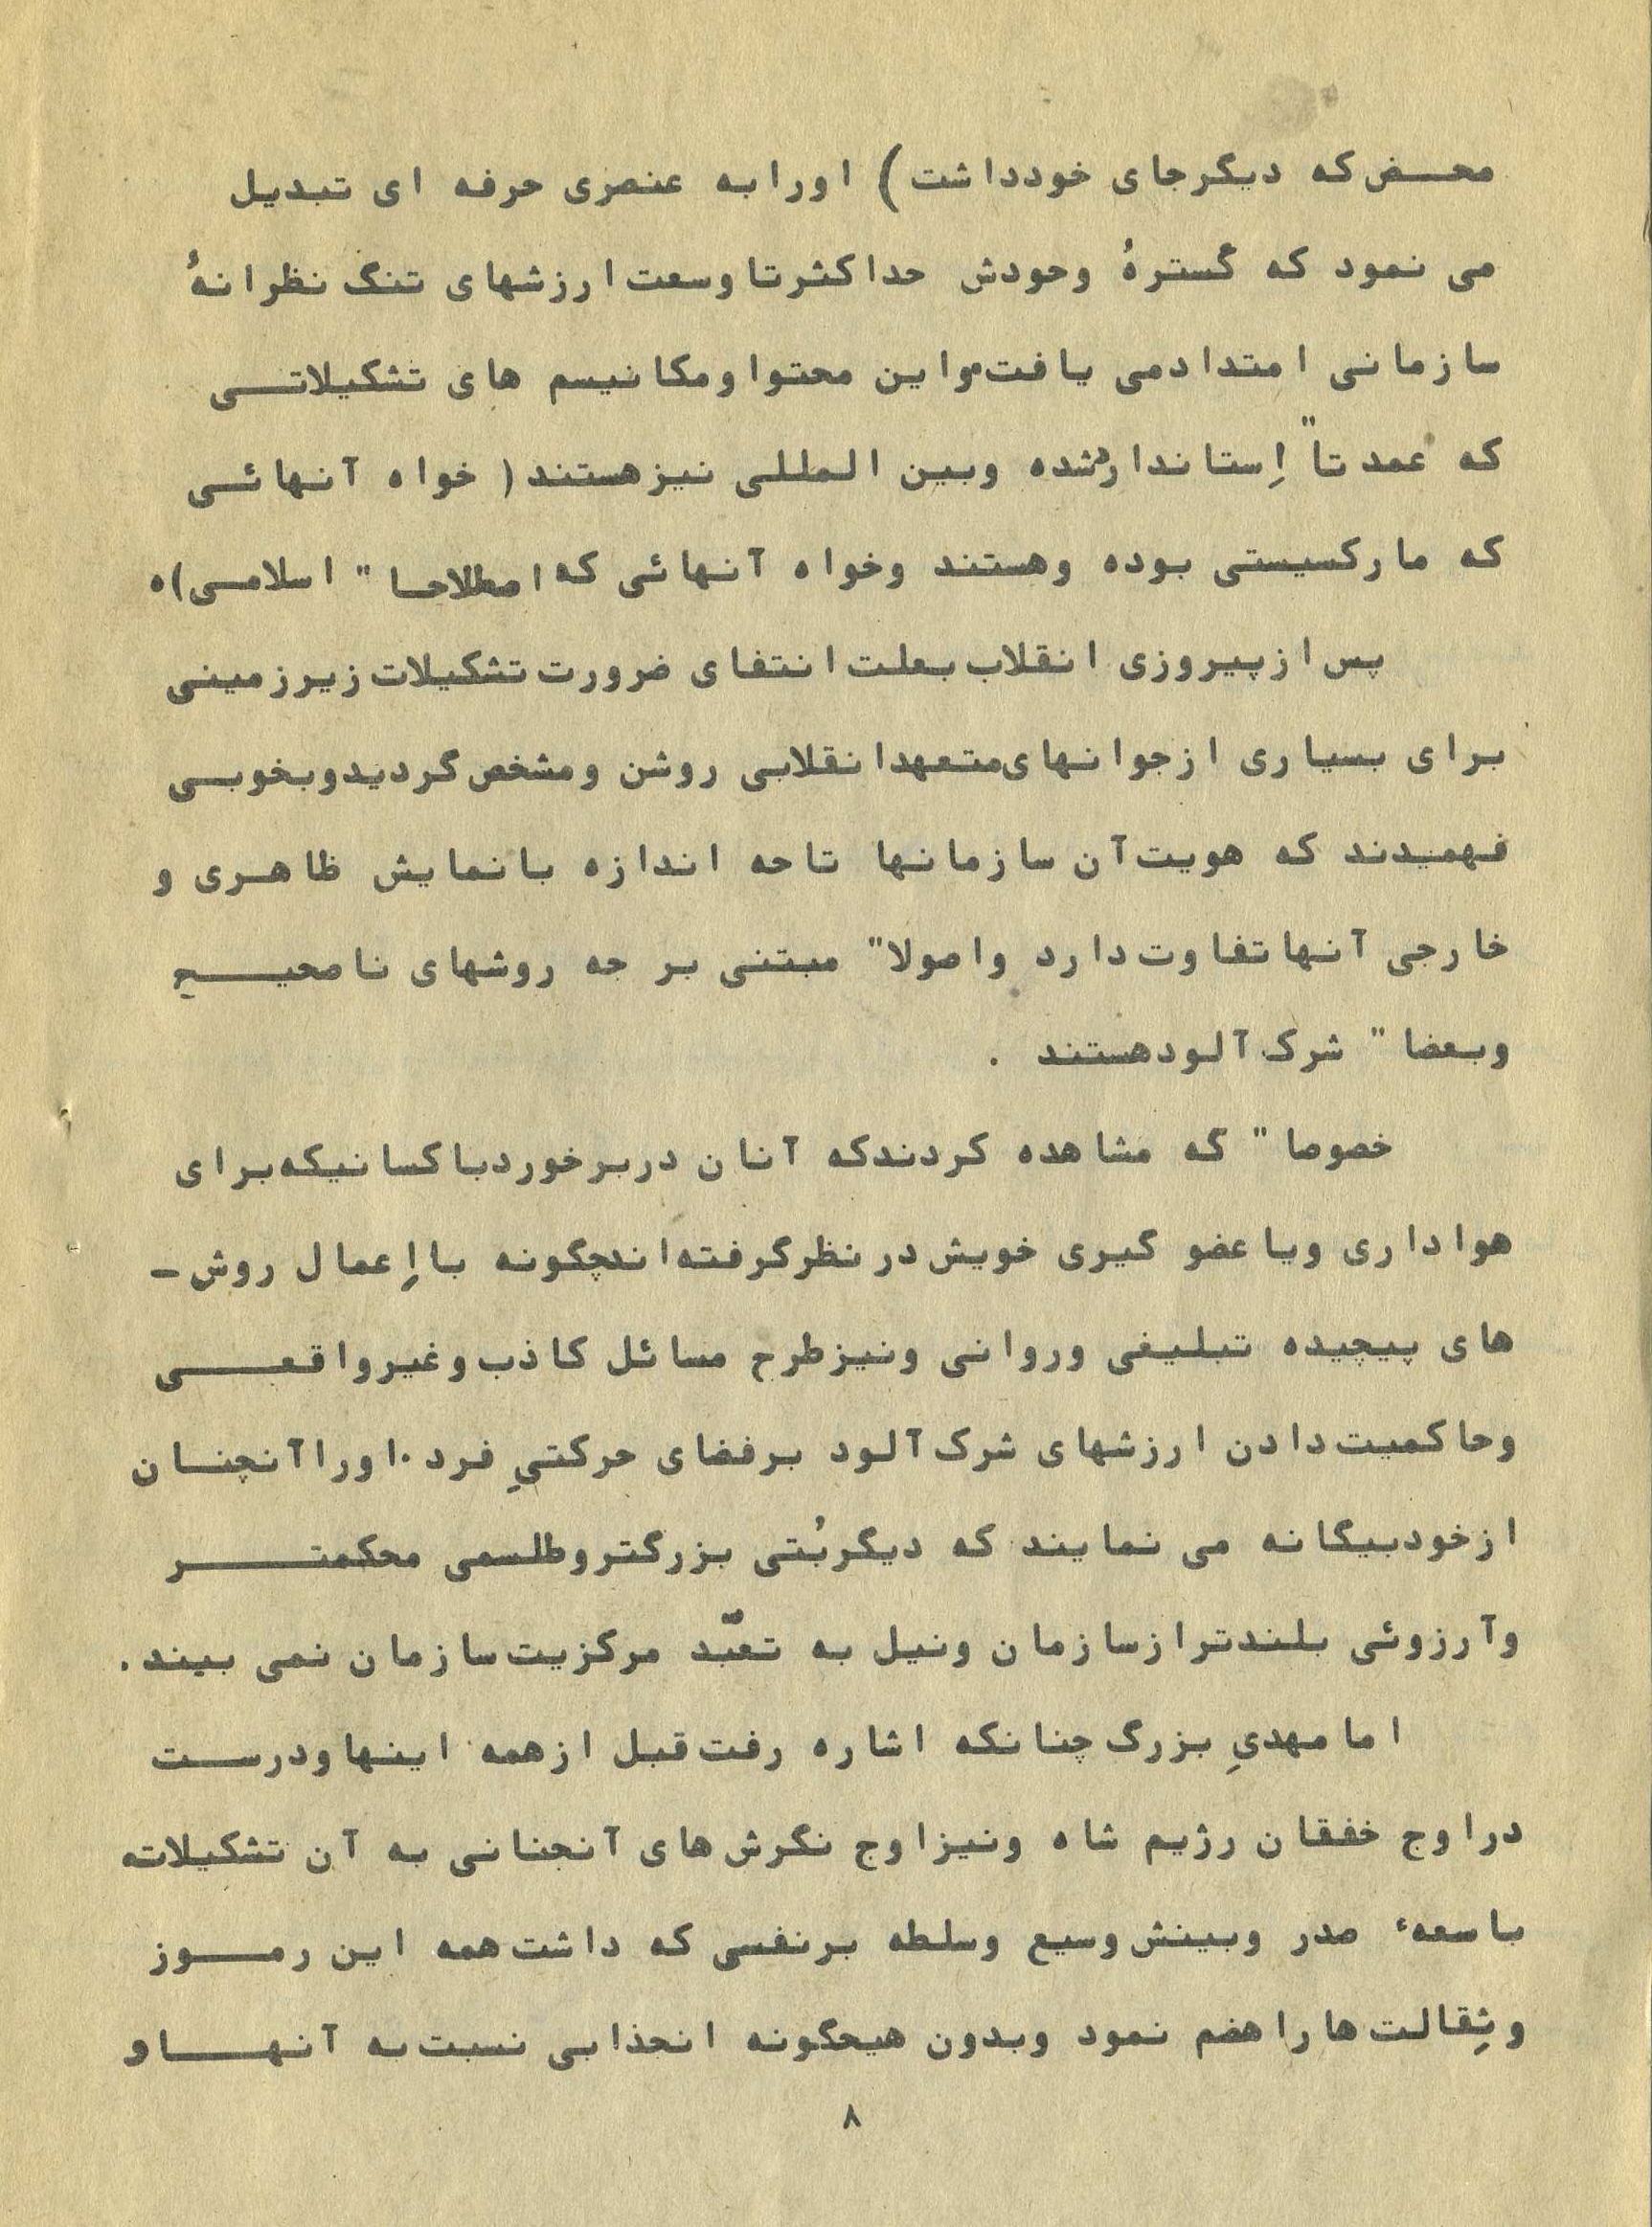 محض که دیگرجای خودداشت) اورابه عنصری حرفه ای تبدیل
می نمود که گسترهٔ وجودش حداکثرتاوسعت ارزشهای تنگ نظرانهٔ
سازمانی امتدادمی یافت. واین محتواومکانیسم های تشکیلاتی
که عمدتا" اِستانداردشده وبین المللی نیزهستند( خواه آنهائی
که مارکسیستی بوده وهستند وخواه آنهائی که اصطلاحا " اسلامی)ه
پس ازپیروزی انقلاب بعلت انتفای ضرورت تشکیلات زیرزمینی
برای بسیاری ازجوانهای متعهدانقلابی روشن ومشخص گردیدوبخوبی
فهمیدند که هویت آن سازمانها تاچه اندازه بانمایش ظاهری و
خارجی آنهاتفاوت دارد واصولا" مبتنی بر چه روشهای ناصحیح
وبعضا " شرک آلودهستند .
خصوصا " گه مشاهده کردندکه آنان دربرخوردباکسانیکه برای
هواداری ویاعضو گیری خویش درنظرگرفته اندچگونه بااِعمال روش-
های پیچیده تبلیغی وروانی ونیزطرح مسائل کاذب وغیرواقعی
وحاکمیت دادن ارزشهای شرک آلود برفضای حرکتیِ فرد.اوراآنچنان
ازخودبیگانه می نمایند که دیگربُتی بزرگتروطلسمی محکمتر
وآرزوئی بلندترازسازمان ونیل به تعبّد مرکزیت سازمان نمی بیند.
امامهدیِ بزرگ چنانکه اشاره رفت قبل ازهمه اینهاودرست
دراوج خفقان رژیم شاه ونیزاوج نگرش های آنچنانی به آن تشکیلات
باسعهء صدر وبینش وسیع وسلطه برنفسی که داشت همه این رموز
وثِقالت هاراهضم نمود وبدون هیچگونه انجذابی نسبت به آنهاو
۸